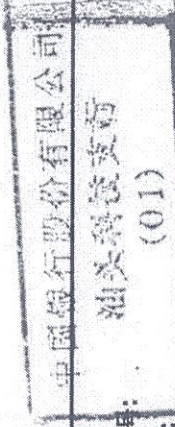 中国银行股份有限公司
汕头科技支行
(01)